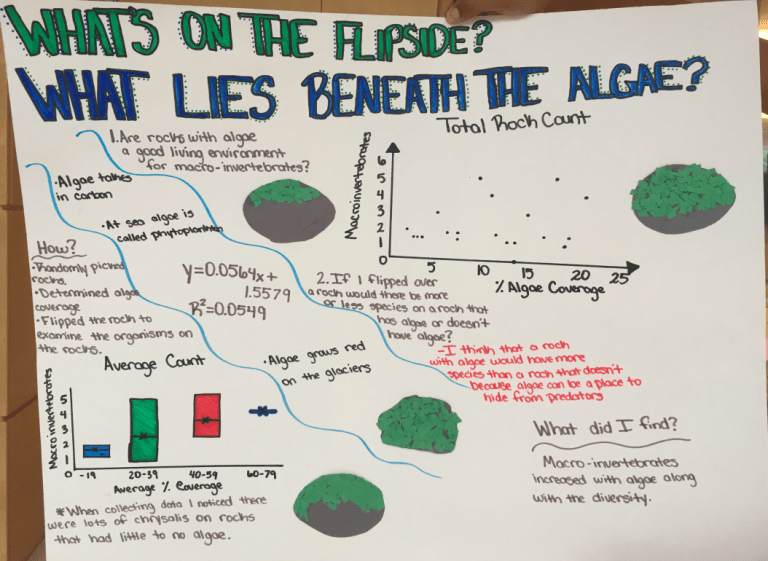 WHAT'S ON THE FLIPSIDE?
WHAT LIES BENEATH THE ALGAE?
1. Are rocks with algae
a good living environment
for macro-invertebrates?
•Algae takes
in carbon
•At sea algae is
called phytoplankton
How?
•Randomly picked
rocks.
•Determined algae
coverage
•Flipped the rock to
examine the organisms on
the rocks.
y=0.0564x+
1.5579
R²=0.0549
Total Rock Count
Macroinvertebrates
6
5
4
3
2
1
0
5 10 15 20 25
% Algae Coverage
2. If I flipped over
a rock would there be more
or less species on a rock that
has algae or doesn't
have algae?
-I think that a rock
with algae would have more
species than a rock that doesn't
because algae can be a place to
hide from predators
•Algae grows red
on the glaciers
Average Count
Macroinvertebrates
5
4
3
2
1
0 -19 20-39 40-59 60-79
Average % Coverage
*When collecting data I noticed there
were lots of chrysalis on rocks
that had little to no algae.
What did I find?
Macro-invertebrates
increased with algae along
with the diversity.